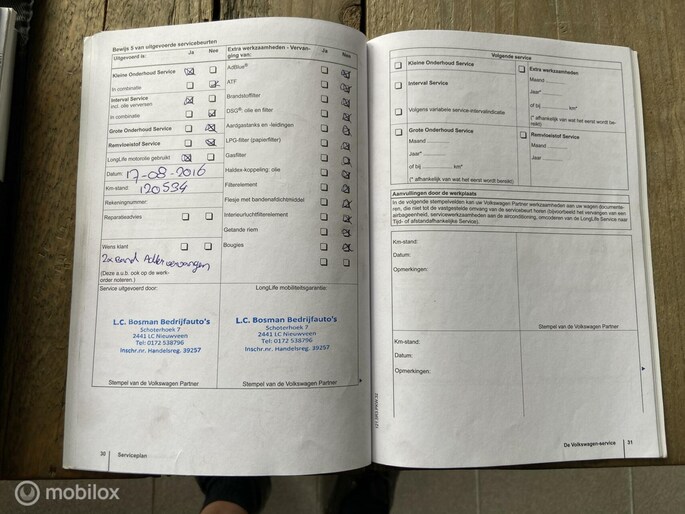 Bewijs 5 van uitgevoerde servicebeurten
Uitgevoerd is: Ja Nee
Kleine Onderhoud Service
In combinatie
Interval Service
incl. olie verversen
In combinatie
Grote Onderhoud Service
Remvloeistof Service
LongLife motorolie gebruikt
Datum: 17-08-2016
Km-stand: 120534
Rekeningnummer:
Reparatieadvies
Wens klant
2x Band Achter vervangen
(Deze a.u.b. ook op de werk-
order noteren.)
Service uitgevoerd door:
L.C. Bosman Bedrijfauto's
Schoterhoek 7
2441 LC Nieuwveen
Tel: 0172 538796
Inschr.nr. Handelsreg. 39257
Stempel van de Volkswagen Partner
Extra werkzaamheden - Vervan-
ging van: Ja Nee
AdBlue®
ATF
Brandstoffilter
DSG®: olie en filter
Aardgastanks en -leidingen
LPG-filter (papierfilter)
Gasfilter
Haldex-koppeling: olie
Filterelement
Flesje met bandenafdichtmiddel
Interieurluchtfilterelement
Getande riem
Bougies
LongLife mobiliteitsgarantie:
L.C. Bosman Bedrijfauto's
Schoterhoek 7
2441 LC Nieuwveen
Tel: 0172 538796
Inschr.nr. Handelsreg. 39257
Stempel van de Volkswagen Partner
30 Serviceplan
Volgende service
Kleine Onderhoud Service
Interval Service
Volgens variabele service-intervalindicatie
Grote Onderhoud Service
Maand ............
Jaar* ............
of bij ............ km*
(* afhankelijk van wat het eerst wordt bereikt)
Extra werkzaamheden
Maand ............
Jaar* ............
of bij ............ km*
(* afhankelijk van wat het eerst wordt be-
reikt)
Remvloeistof Service
Maand ............
Jaar ............
Aanvullingen door de werkplaats
In de volgende stempelvelden kan uw Volkswagen Partner werkzaamheden aan uw wagen documente-
ren, die niet tot de vastgestelde omvang van de servicebeurt horen (bijvoorbeeld het vervangen van een
airbageenheid, servicewerkzaamheden aan de airconditioning, omcoderen van de LongLife Service naar
Tijd- of afstandafhankelijke Service).
Km-stand:
Datum:
Opmerkingen:
Stempel van de Volkswagen Partner
Km-stand:
Datum:
Opmerkingen:
De Volkswagen-service 31
mobilox